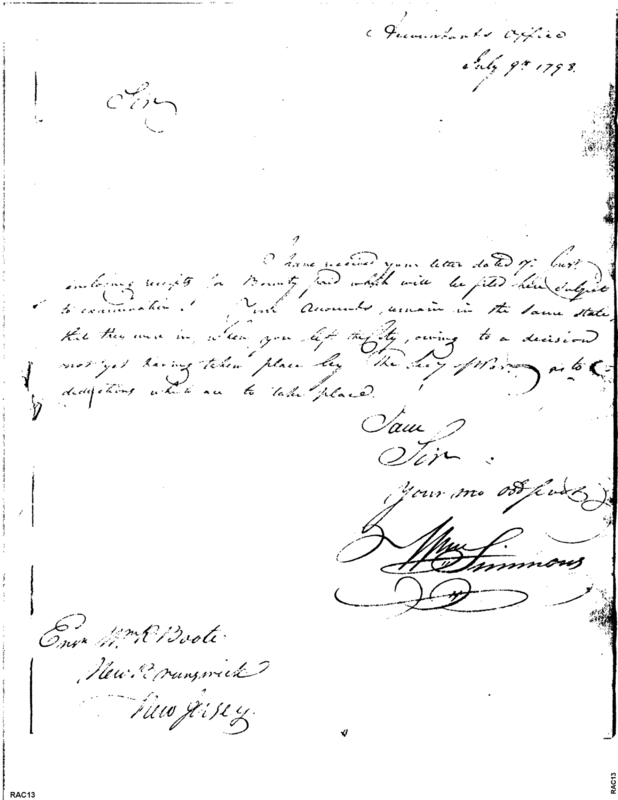 Accountants Office
July 9th 1798.
Sir
I have received your letter dated 7th Inst
enclosing receipts for Bounty paid which will be filed here subject
to examination. Your Accounts, remain in the same state,
that they were in, when you left the City, owing to a decision
not yet having taken place by the Secy of War as to
deductions which are to take place.
I am
Sir
Your mo obd Servt
Wm Simmons
Ensn Wm R Boote
New Brunswick
New Jersey.
RAC13
RAC13